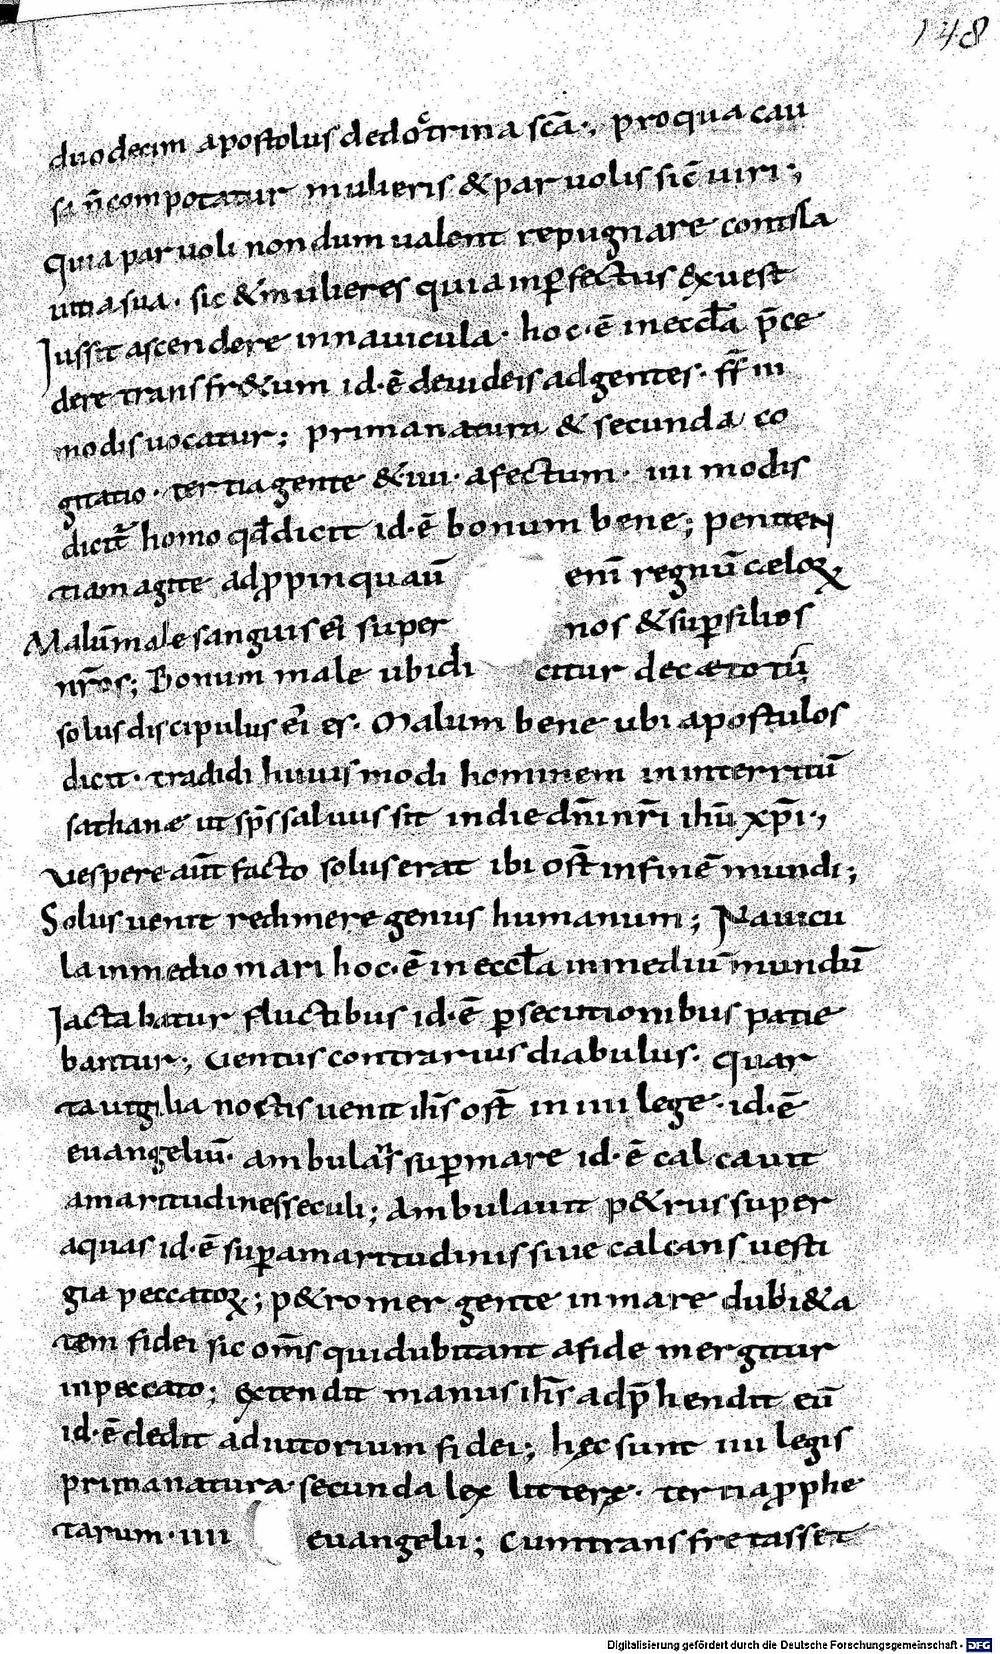 148
duodecim apostolus dedoctrina scā·, pro qua cau
sa n̄ compotatur mulieris & paruolis sic̄ uiri·,
Quia paruoli nondum ualent repugnare contra
uitia sua · sic & mulieres quia inꝑfectus sexus est
Iussit ascendere in nauicula · hoc · ē in eccła p̄ce
dere trans fr&um id · ē de iudeis ad gentes · fr̄ iiii
modis uocatur ; prima natura & secunda co
gitatio · tertia gente & iiii · afectum · iiii modis
dicit̄ homo qđ dicit id · ē bonum bene ; peniten
tiam agite adpropinquauit̄ eni̅ regnū cæloꝝ,
Malū male sanguis ei super nos & suꝑ filios
nr̄os ; Bonum male ubi dicitur de cæto tū
solus discipulus ei es · Malum bene ubi apostulos
dicit · tradidi huiuismodi hominem in interritū
sathanæ ut sps̄ saluus sit in die dnī nrī ihū xp̄i·,
Vespere aut̄ facto solus erat ibi ost̄ in finē mundi ;
Solus uenit redimere genus humanum ; Nauicu
la in medio mari hoc · ē in eccła in mediū mundū
Iactabatur fluctibus id · ē ꝑsecutionibus patie
bantur ; Uentus contrarius diabulus · Quar
ta uigilia noctis uenit ihs̄ ost̄ in iiii lege · id · ē
euangeliū · ambulans suꝑ mare id · ē calcauit
amaritudines seculi ; Ambulauit p&rus super
aquas id · ē suꝑ amaritudinis siue calcans uesti
gia peccatoꝝ ; p&ro mergente in mare dubi&a
tem fidei sic om̄s qui dubitant a fide mergitur
in peccato ; extendit manus ihs̄ adp̄hendit eū
id · ē dedit adiutorium fidei ; hęc sunt iiii legis
prima natura · secunda lex litterę · tertia ꝓphe
tarum · iiii euangelii ; Cum transfretasset
Digitalisierung gefördert durch die Deutsche Forschungsgemeinschaft - DFG